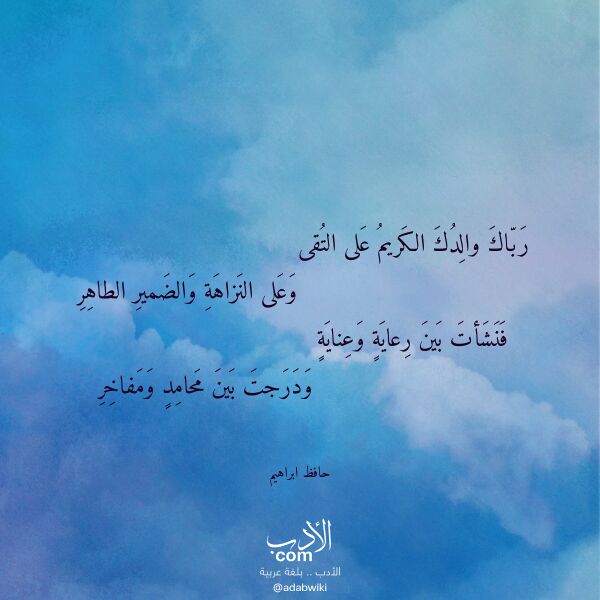 رَبّاكَ والِدُكَ الكَريمُ عَلى التُقى
وَعَلى النَزاهَةِ وَالضَميرِ الطاهِرِ
فَنَشَأتَ بَينَ رِعايَةٍ وَعِنايَةٍ
وَدَرَجتَ بَينَ مَحامِدٍ وَمَفاخِرِ
حافظ ابراهيم
الأدب
.com
الأدب .. بلغة عربية
@adabwiki